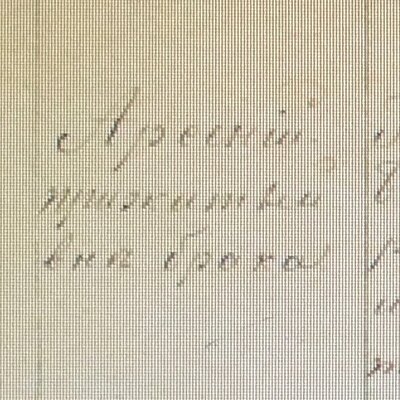 Арсеній
прижитый
внѣ брака